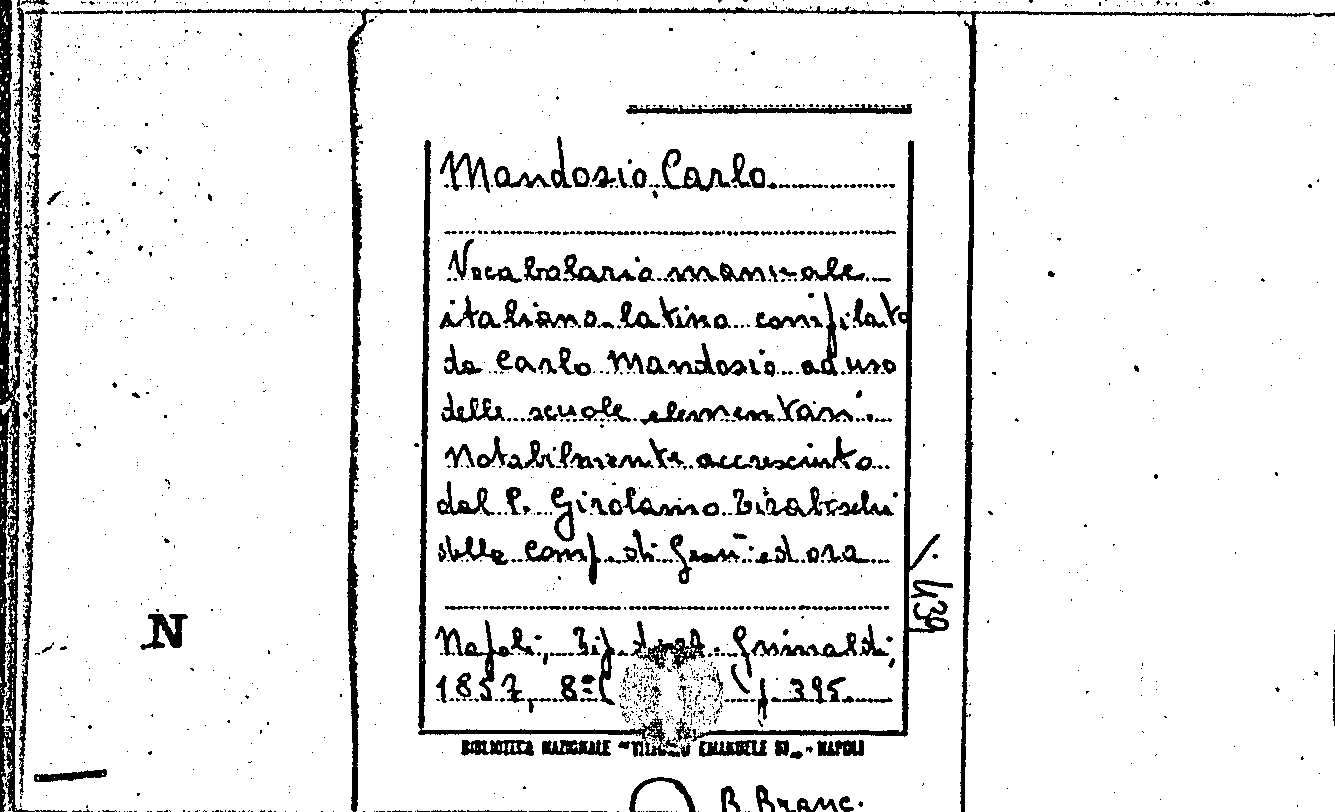 Mandosio, Carlo.
Vocabolario manuale
italiano-latino compilato
da Carlo Mandosio ad uso
delle scuole elementari.
Notabilmente accresciuto
dal P. Girolamo Tiraboschi
della comp. di Gesù ed ora
439
N
Napoli, Tip. Grimaldi,
1857, 8º p. 395.
BIBLIOTECA NAZIONALE "VITTORIO EMANUELE III" - NAPOLI
B. Branc.